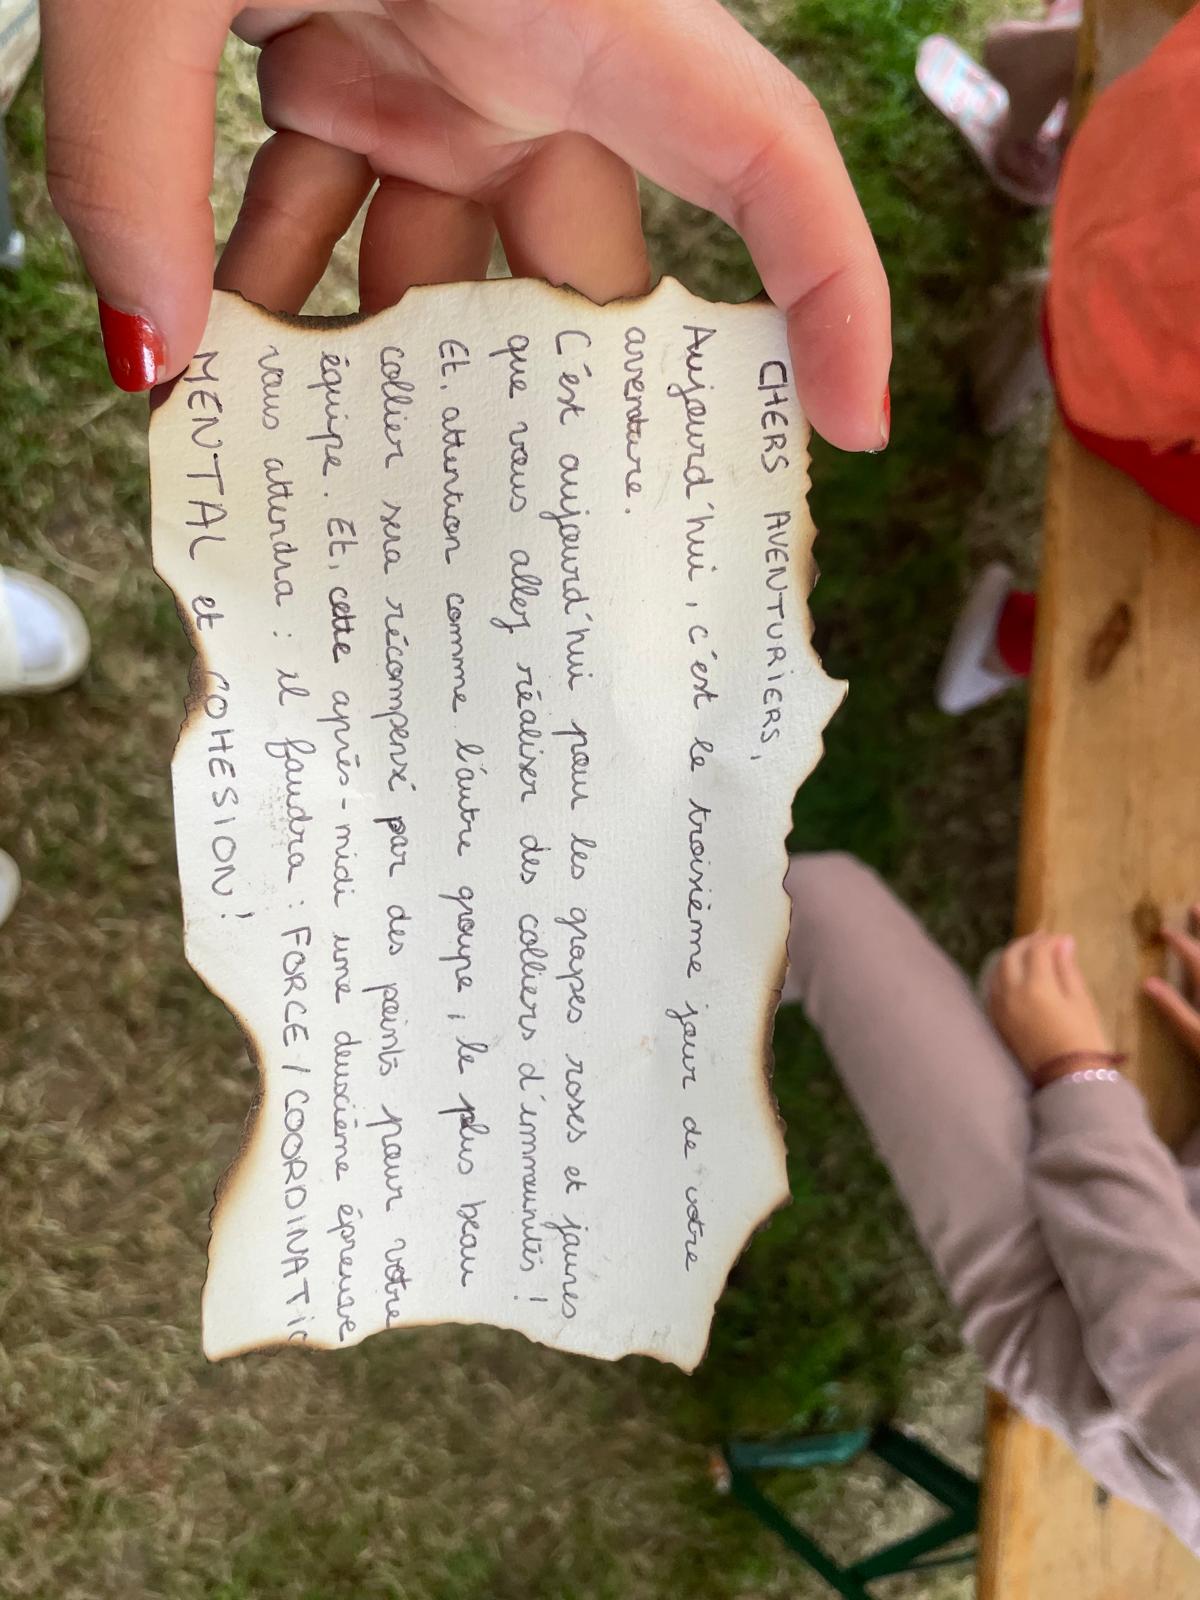 CHERS AVENTURIERS,
Aujourd'hui, c'est le troisième jour de votre
aventure.
C'est aujourd'hui pour les grapes roses et jaunes
que vous allez réaliser des colliers d'immunités !
Et, attention comme l'autre groupe, le plus beau
collier sera récompensé par des points pour votre
équipe. Et, cette après-midi une deuxième épreuve
vous attendra : il faudra : FORCE / COORDINATIO
MENTAL et COHESION !